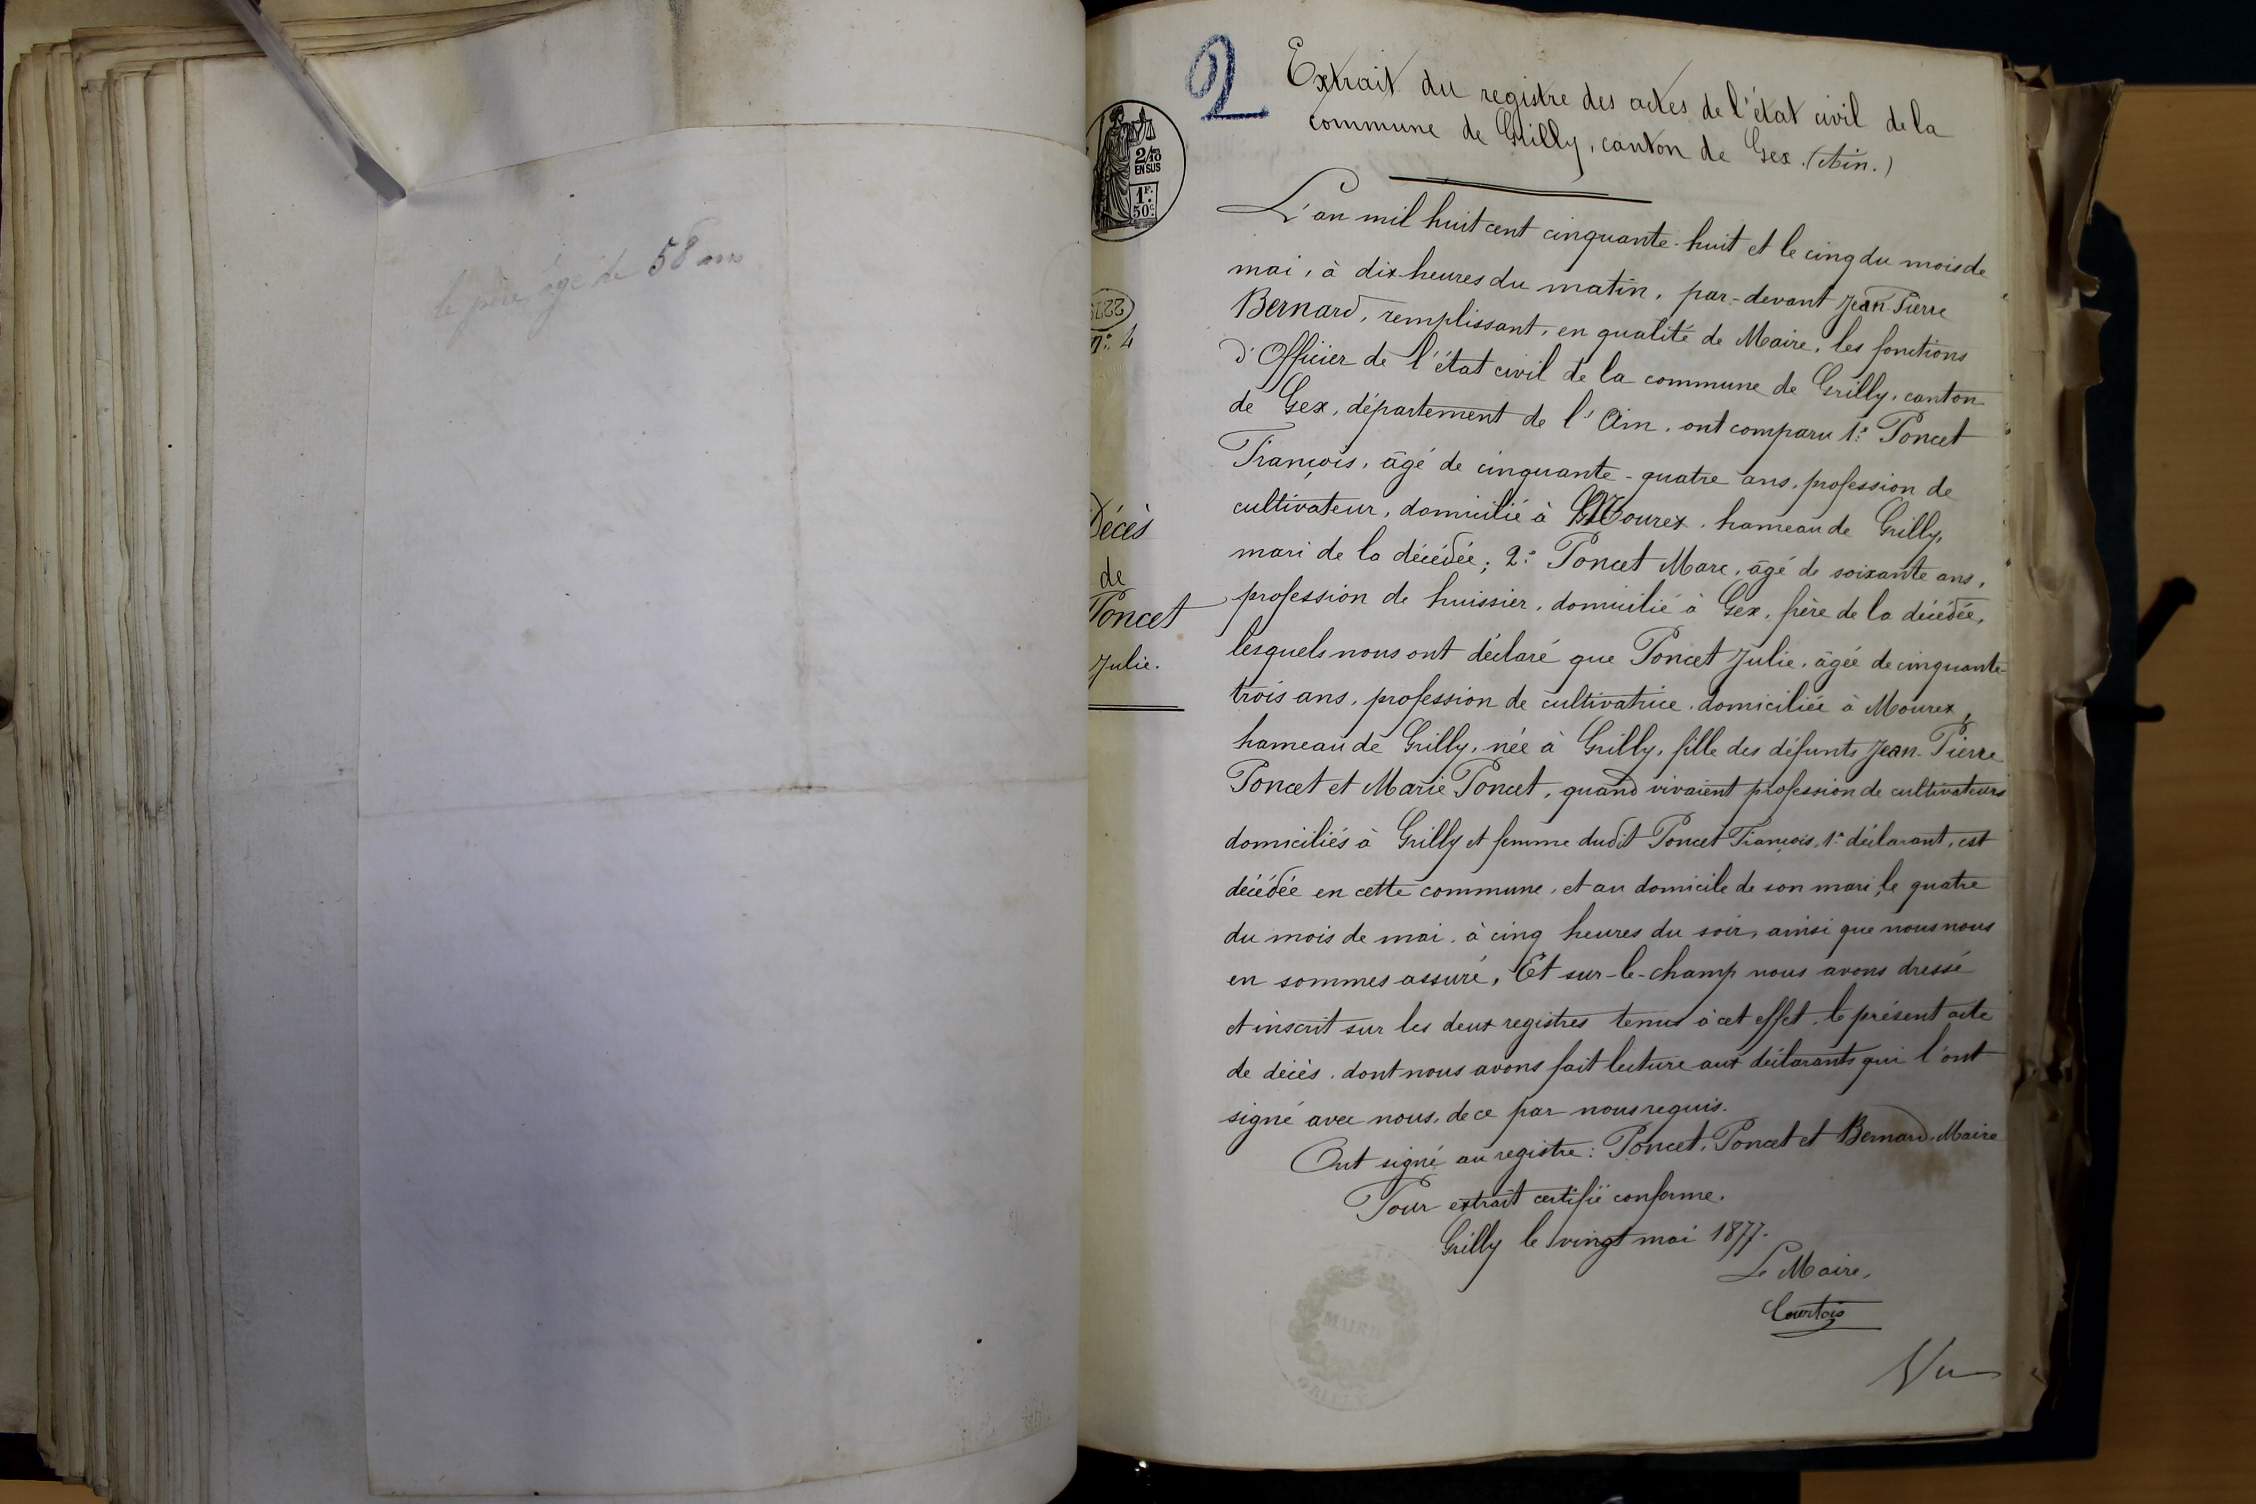 le père âgé de 58 ans
2
Extrait du registre des actes de l'état civil de la
commune de Grilly, canton de Gex. (Ain.)
2/10
EN SUS
1F.
50c.
222
n°. 4
Décès
de
Poncet
Julie.
L'an mil huit cent cinquante-huit et le cinq du mois de
mai, à dix heures du matin, par-devant Jean-Pierre
Bernard, remplissant, en qualité de Maire, les fonctions
d'Officier de l'état civil de la commune de Grilly, canton
de Gex, département de l'Ain, ont comparu 1° Poncet
François, âgé de cinquante-quatre ans, profession de
cultivateur, domicilié à Mourex, hameau de Grilly,
mari de la décédée; 2° Poncet Marc, âgé de soixante ans,
profession de huissier, domicilié à Gex, frère de la décédée,
lesquels nous ont déclaré que Poncet Julie, âgée de cinquante-
trois ans, profession de cultivatrice, domiciliée à Mourex,
hameau de Grilly, née à Grilly, fille des défunts Jean-Pierre
Poncet et Marie Poncet, quand vivaient profession de cultivateurs
domiciliés à Grilly et femme dudit Poncet François, 1° déclarant, est
décédée en cette commune, et au domicile de son mari, le quatre
du mois de mai, à cinq heures du soir, ainsi que nous nous
en sommes assuré, Et sur-le-champ nous avons dressé
et inscrit sur les deux registres tenus à cet effet, le présent acte
de décès, dont nous avons fait lecture aux déclarants qui l'ont
signé avec nous, de ce par nous requis.
Ont signé au registre: Poncet, Poncet et Bernard, Maire
Pour extrait certifié conforme.
Grilly le vingt mai 1877.
Le Maire,
Courtois
MAIRIE
Vu